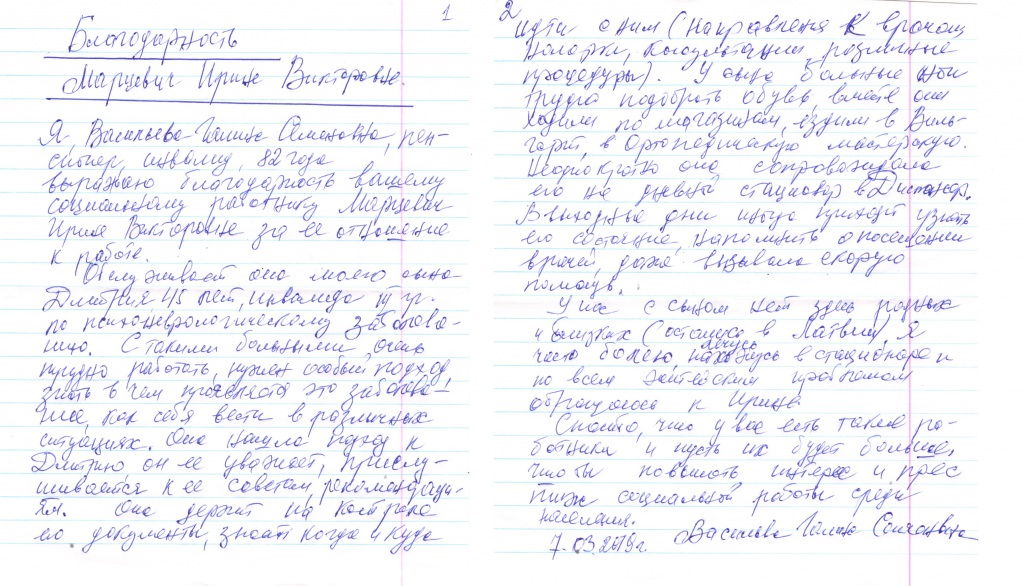 1
Благодарность
Марцевич Ирине Викторовне.
Я, Васильева Галина Семеновна, пен-
сионер, инвалид, 82 года
выражаю благодарность вашему
социальному работнику Марцевич
Ирине Викторовне за ее отношение
к работе.
Обслуживает она моего сына
Дмитрия 45 лет, инвалида гр.
по психоневрологическому заболева-
нию. С такими больными, очень
трудно работать, нужен особый подход,
знать в чем проявляется это заболева-
ние, как себя вести в различных
ситуациях. Она нашла подход к
Дмитрию, он ее уважает, прислу-
шивается к ее советам, рекомендаци-
ям. Она держит на контроле
его документы, знает когда и куда
2
идти с ним (направления к врачам
консультации, различные
процедуры). У сына больные ноги
трудно подобрать обувь, вместе они
ходили по магазинам, ездили в Виль-
в ортопедическую мастерскую.
Неоднократно она сопровождала
его на дневной стационар в Диспансер.
В выходные дни иногда приходит узнать
его состояние, напомнить о посещении
врачей, даже вызывала скорую
помощь.
У нас с сыном нет здесь родных
и близких (остались в Латвии). Я
часто болею, нахожусь в стационаре и
по всем житейским проблемам
обращаюсь к Ирине.
Спасибо, что у вас есть такие ра-
ботники и пусть их будет больше,
чтобы повысить интерес и прес
тиж социальной работы среди
населения.
7.03.2019г. Васильева Галина Семеновна